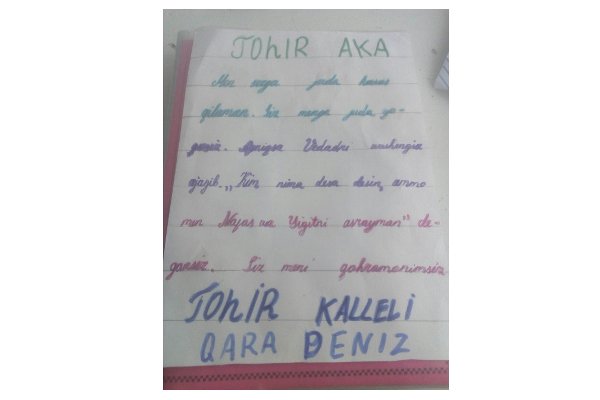 TOhIR AKA
Men sizga juda havas
qilaman. Siz menga juda yo-
qasiz. Ayniqsa Vedadni urishingiz
ajayib. „Kim nima desa desin, ammo
men Nafas va Yigitni asrayman" de-
gansiz. Siz meni qahramonimsiz
TOhIR KALLELI
QARA DENIZ